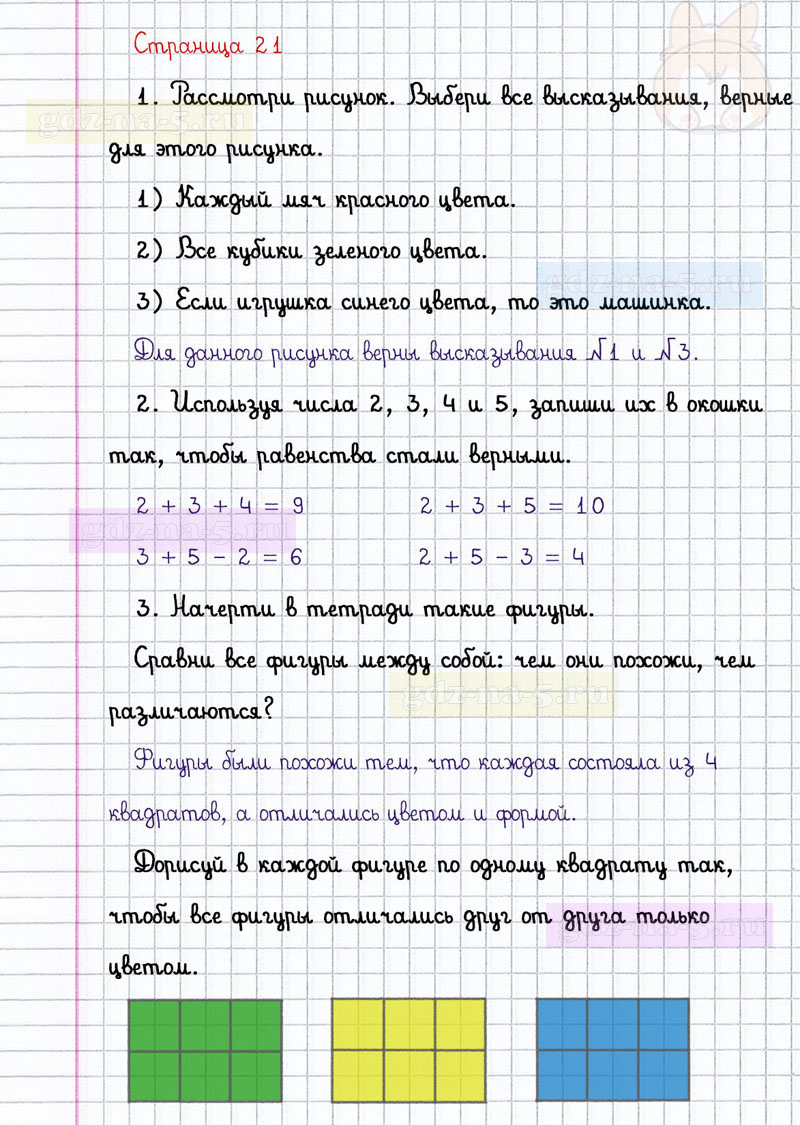 Страница 21
1. Рассмотри рисунок. Выбери все высказывания, верные
gdz-na-5.ru
для этого рисунка.
1) Каждый мяч красного цвета.
2) Все кубики зеленого цвета.
gdz-na-5.ru
3) Если игрушка синего цвета, то это машинка.
Для данного рисунка верны высказывания №1 и №3.
2. Используя числа 2, 3, 4 и 5, запиши их в окошки
так, чтобы равенства стали верными.
2 + 3 + 4 = 9 2 + 3 + 5 = 10
gdz-na-5.ru
3 + 5 - 2 = 6 2 + 5 - 3 = 4
3. Начерти в тетради такие фигуры.
Сравни все фигуры между собой: чем они похожи, чем
gdz-na-5.ru
различаются?
Фигуры были похожи тем, что каждая состояла из 4
квадратов, а отличались цветом и формой.
Дорисуй в каждой фигуре по одному квадрату так,
чтобы все фигуры отличались друг от друга только
gdz-na-5.ru
цветом.